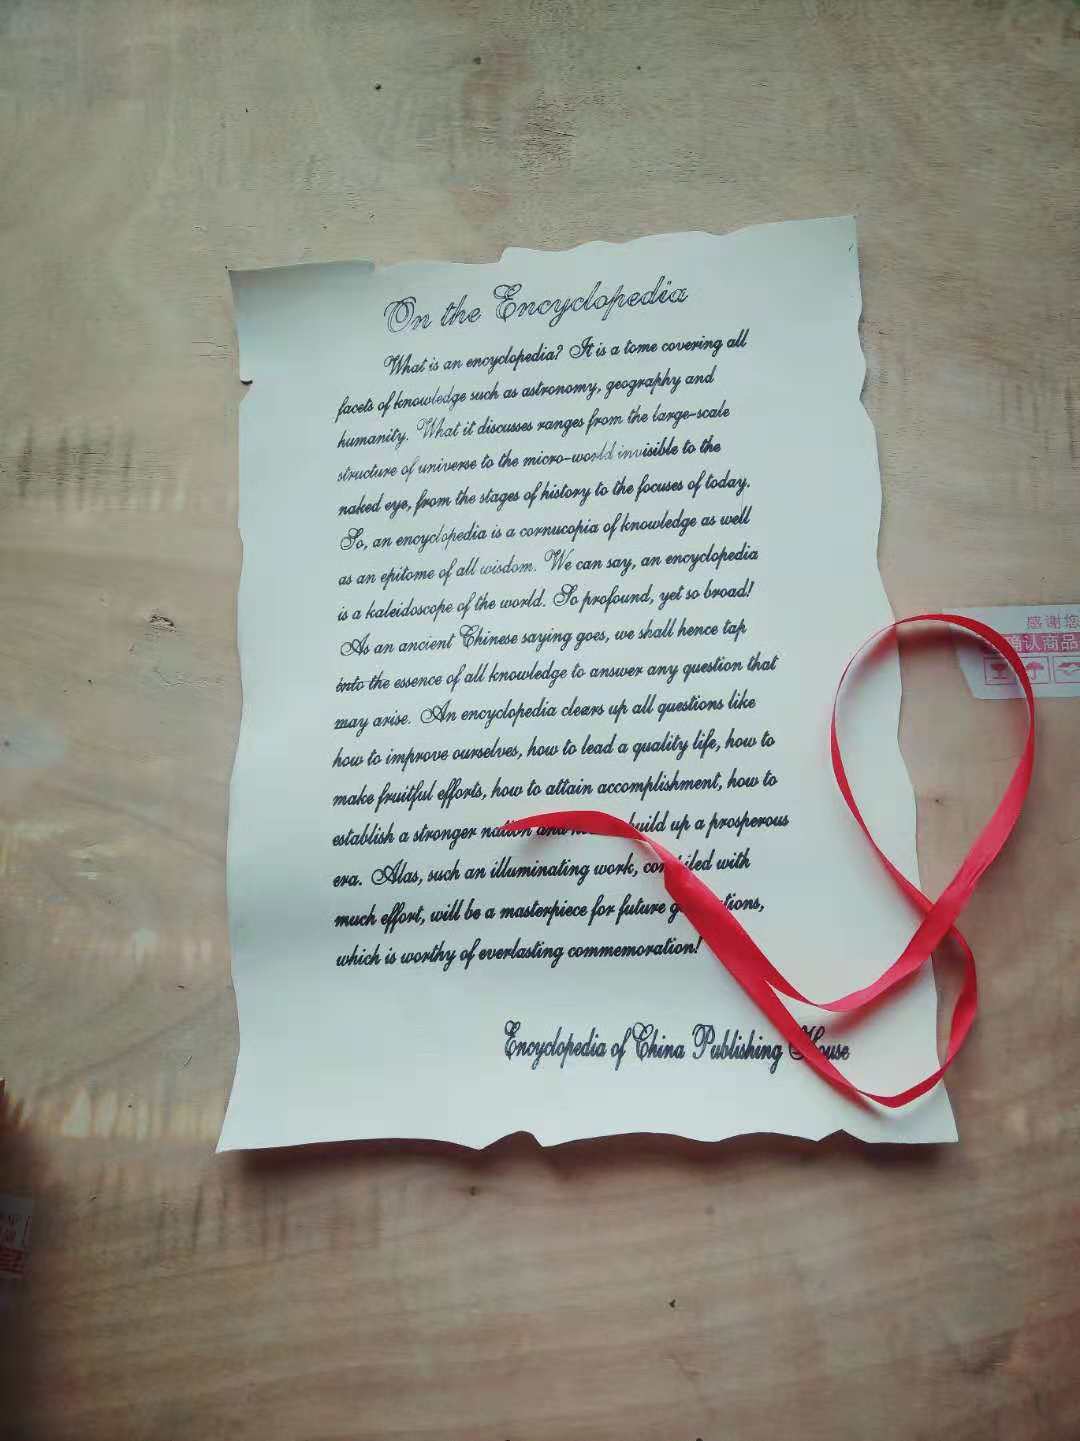 On the Encyclopedia
What is an encyclopedia? It is a tome covering all
facets of knowledge such as astronomy, geography and
humanity. What it discusses ranges from the large-scale
structure of universe to the micro-world invisible to the
naked eye, from the stages of history to the focuses of today.
So, an encyclopedia is a cornucopia of knowledge as well
as an epitome of all wisdom. We can say, an encyclopedia
is a kaleidoscope of the world. So profound, yet so broad!
As an ancient Chinese saying goes, we shall hence tap
into the essence of all knowledge to answer any question that
may arise. An encyclopedia clears up all questions like
how to improve ourselves, how to lead a quality life, how to
make fruitful efforts, how to attain accomplishment, how to
establish a stronger nation and build up a prosperous
era. Alas, such an illuminating work, compiled with
much effort, will be a masterpiece for future generations,
which is worthy of everlasting commemoration!
Encyclopedia of China Publishing House
感谢您
确认商品